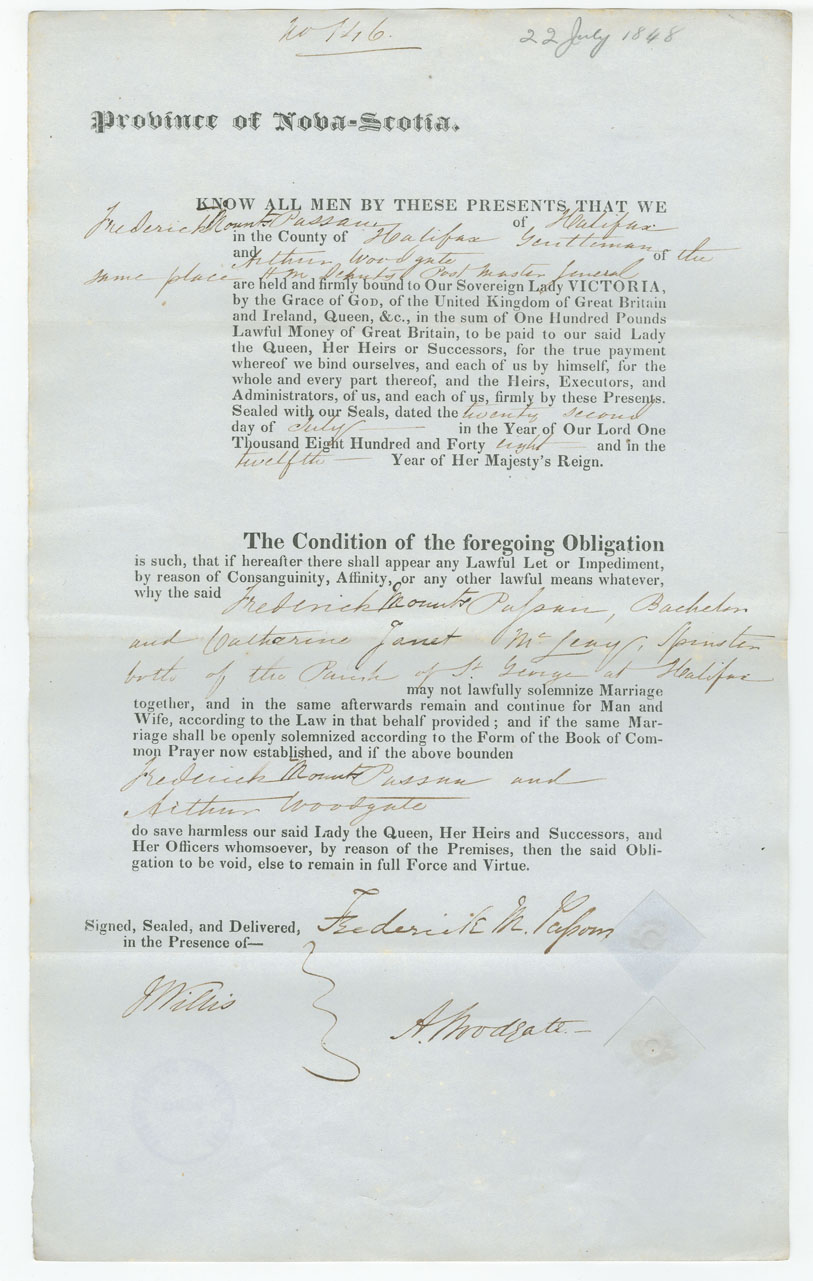 No 1416.
22 July 1848
Province of Nova-Scotia.
KNOW ALL MEN BY THESE PRESENTS THAT WE
Frederick Mount Passau of Halifax
in the County of Halifax Gentleman
and Arthur Woodgate of the
same place H M Deputy Post Master General
are held and firmly bound to Our Sovereign Lady VICTORIA,
by the Grace of GOD, of the United Kingdom of Great Britain
and Ireland, Queen, &c., in the sum of One Hundred Pounds
Lawful Money of Great Britain, to be paid to our said Lady
the Queen, Her Heirs or Successors, for the true payment
whereof we bind ourselves, and each of us by himself, for the
whole and every part thereof, and the Heirs, Executors, and
Administrators, of us, and each of us, firmly by these Presents.
Sealed with our Seals, dated the twenty second
day of July in the Year of Our Lord One
Thousand Eight Hundred and Forty eight and in the
twelfth Year of Her Majesty's Reign.
The Condition of the foregoing Obligation
is such, that if hereafter there shall appear any Lawful Let or Impediment,
by reason of Consanguinity, Affinity, or any other lawful means whatever,
why the said Frederick Mount Passau, Bachelor
and Catherine Janet McLeay, Spinster
both of the Parish of St George at Halifax
may not lawfully solemnize Marriage
together, and in the same afterwards remain and continue for Man and
Wife, according to the Law in that behalf provided; and if the same Mar-
riage shall be openly solemnized according to the Form of the Book of Com-
mon Prayer now established, and if the above bounden
Frederick Mount Passau and
Arthur Woodgate
do save harmless our said Lady the Queen, Her Heirs and Successors, and
Her Officers whomsoever, by reason of the Premises, then the said Obli-
gation to be void, else to remain in full Force and Virtue.
Signed, Sealed, and Delivered,
in the Presence of—
Frederick M. Passow
J Willis
A. Woodgate